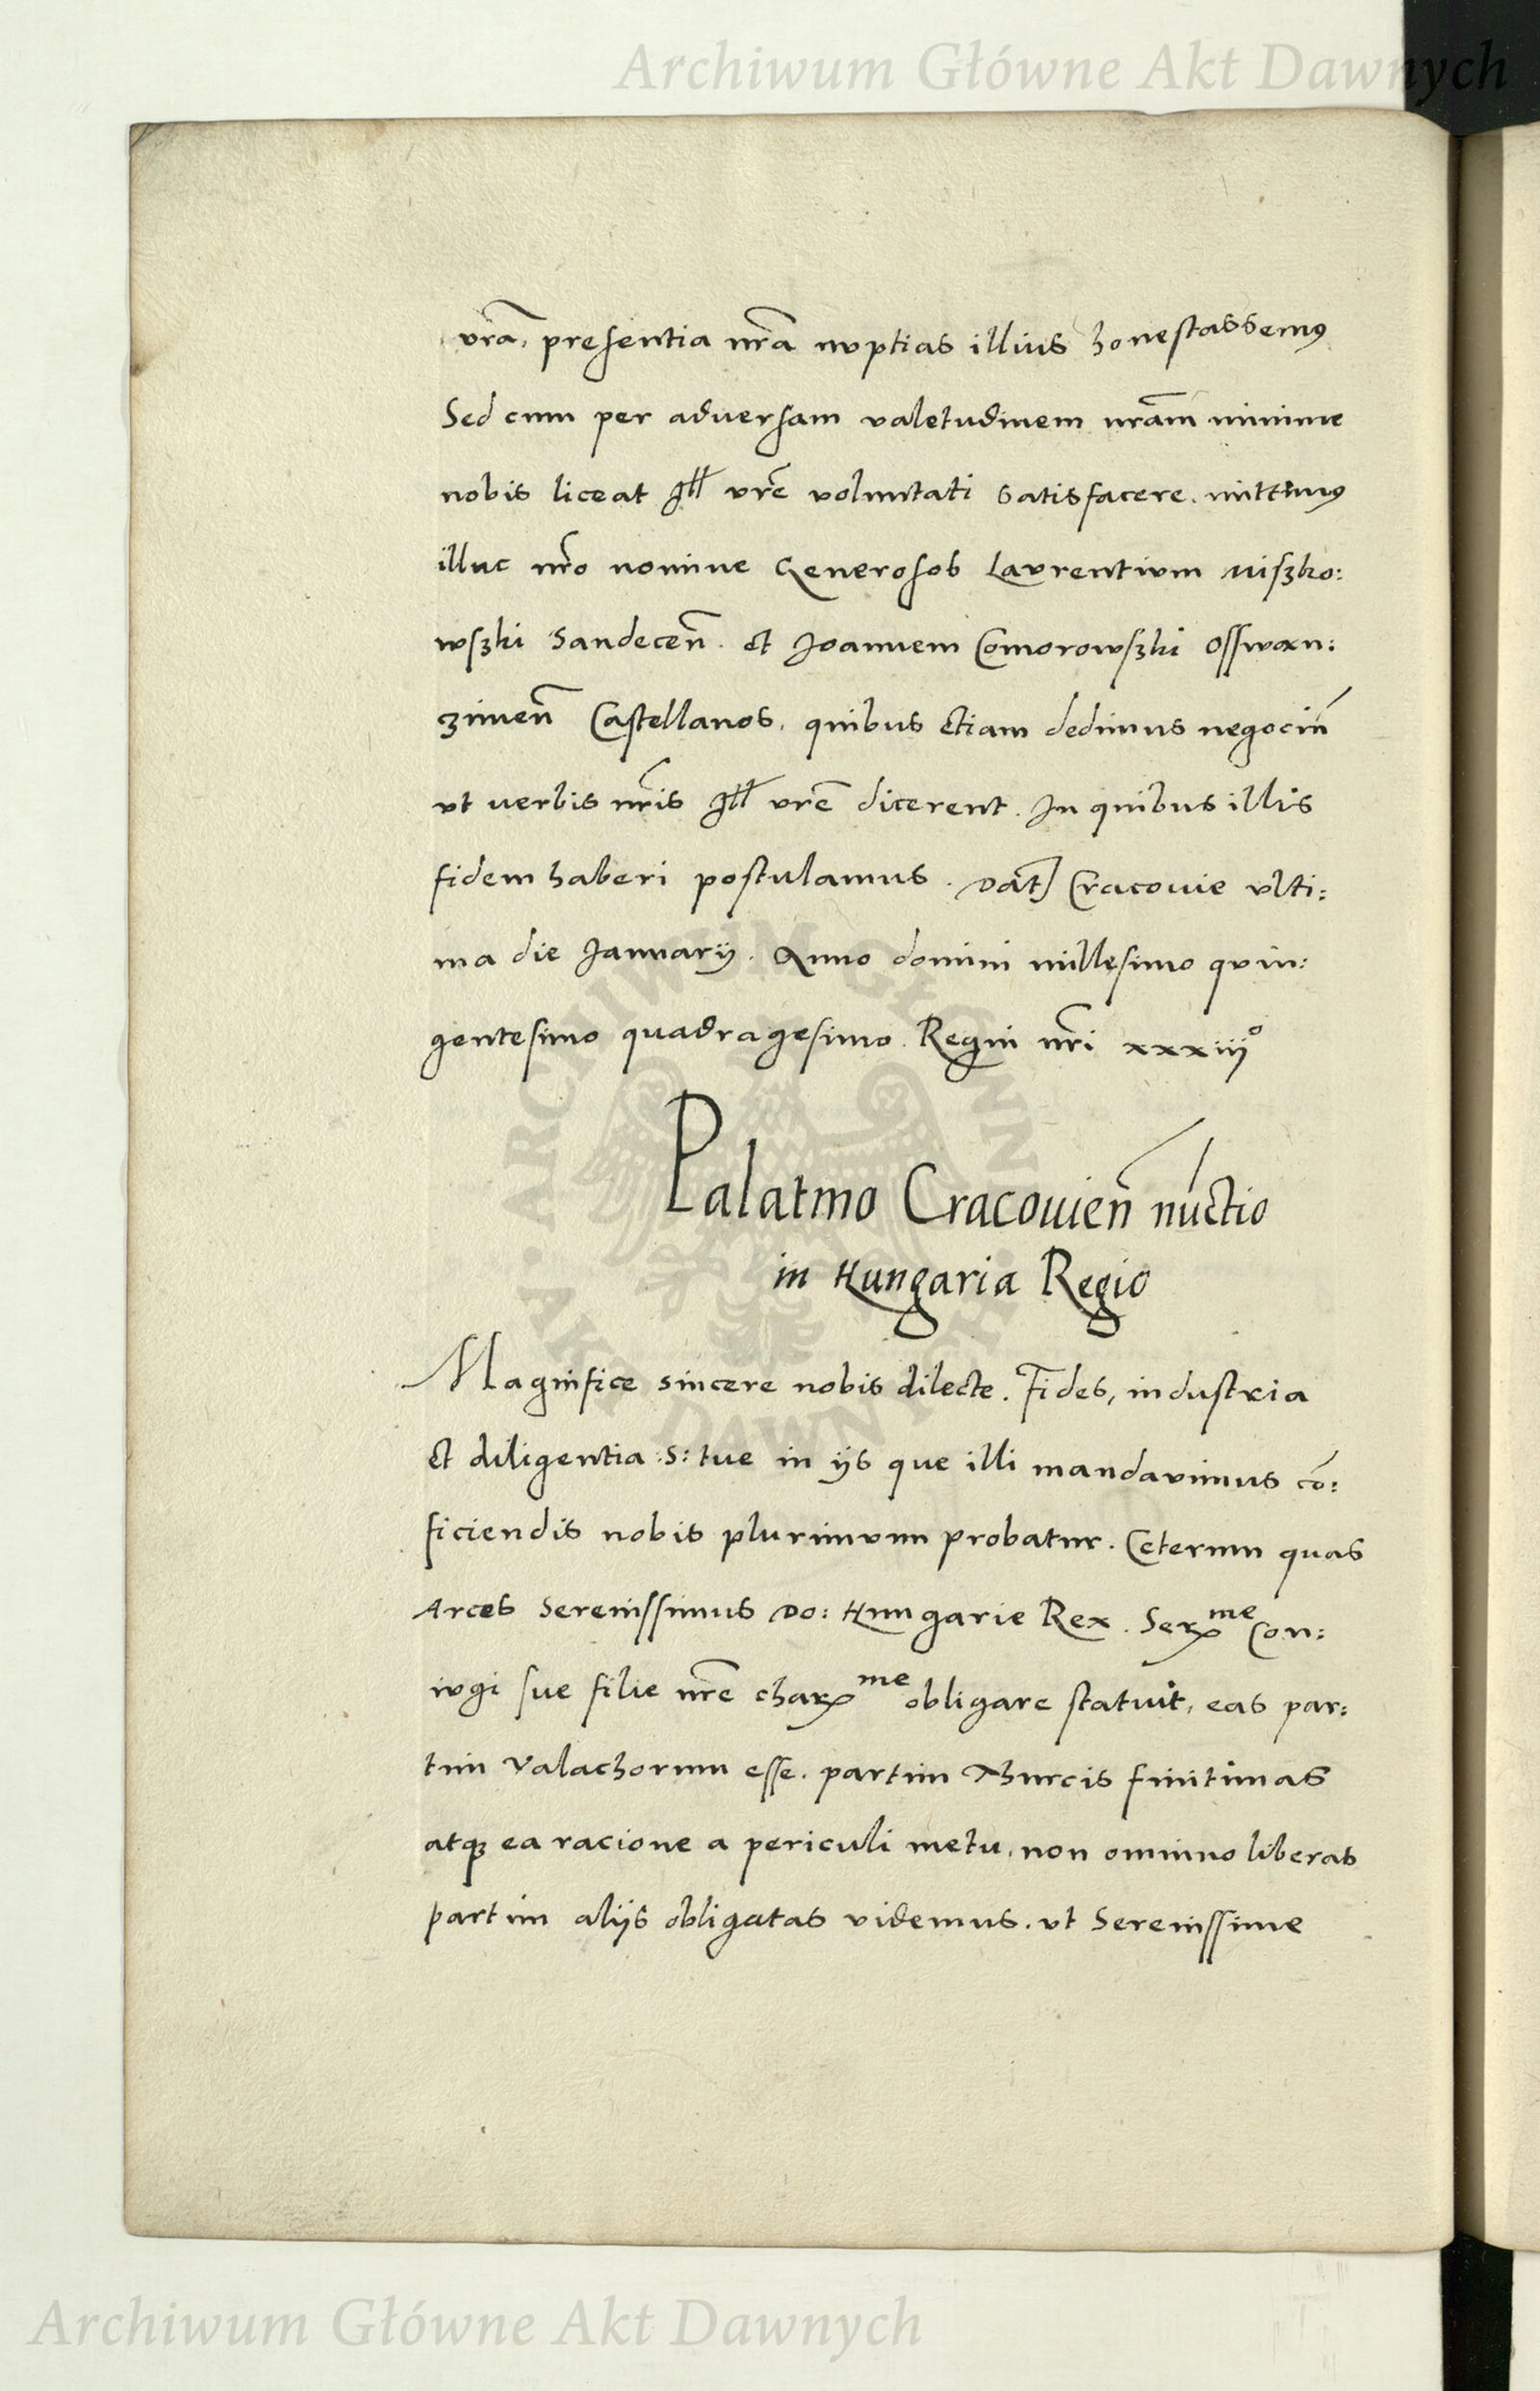 Archiwum Główne Akt Dawnych
vrã, presentia nrã nuptias illius honestassemus
Sed cum per adversam valetudinem nrãm minime
nobis liceat Ill vrẽ voluntati satisfacere. mittimus
illuc nrõ nomine Generosos Laurentium Miszko:
wszki Sandeceñ. et Joannem Comorowszki Osswan:
zimeñ Castellanos, quibus etiam dedimus negociũ
ut verbis nrĩs Ill vrẽ dicerent. In quibus illis
fidem haberi postulamus. Dat Cracovie ulti:
ma die Januarij. Anno domini millesimo quin:
gentesimo quadragesimo. Regni nrĩ xxxiiij°
Palatino Cracovieñ nũctio
in Hungaria Regio
Magnifice sincere nobis dilecte. Fides, industria
et diligentia S: tue in ijs que illi mandavimus cõ:
ficiendis nobis plurimum probatur. Ceterum quas
Arces Serenissimus Do: Hungarie Rex. Ser^me Con:
iugi sue filie nrẽ char^me obligare statuit, eas par:
tim Valachorum esse. partim Thurcis finitimas
atq; ea racione a periculi metu, non omnino liberas
partim alijs obligatas videmus. ut Serenissime
ARCHIWUM GŁÓWNE · AKT DAWNYCH ·
Archiwum Główne Akt Dawnych